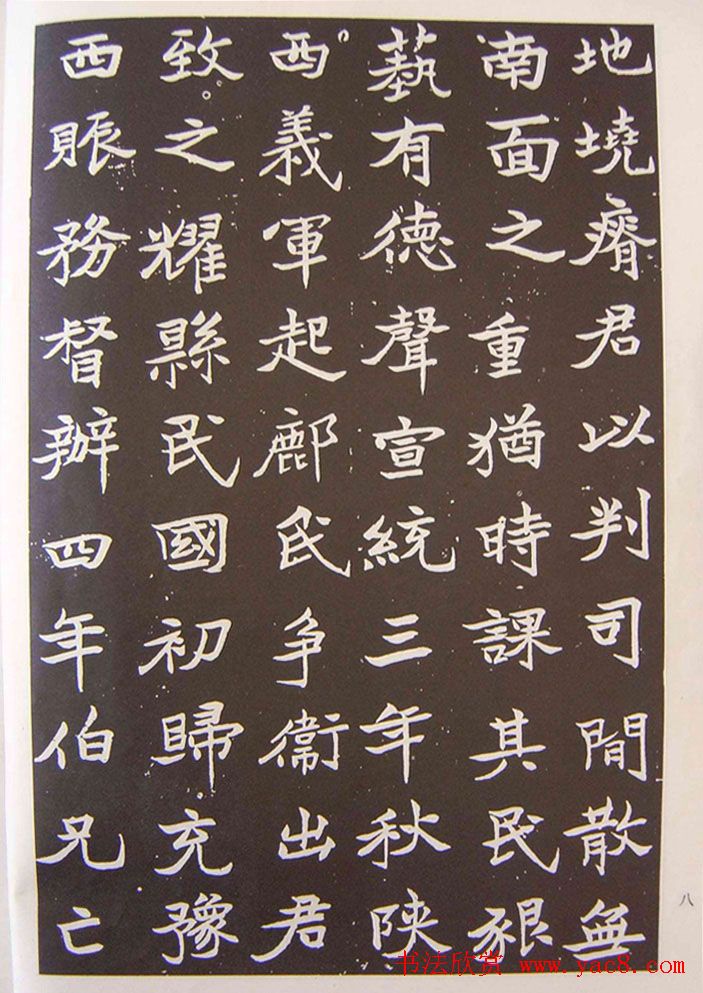 地墝瘠君以判司閒散無
南面之重猶時課其民豤
藝有德聲宣統三年秋陝
西義軍起鄜民爭衞出君
致之耀縣民國初歸充豫
西賑務督辦四年伯兄亡
八
书法欣赏 www.yac8.com